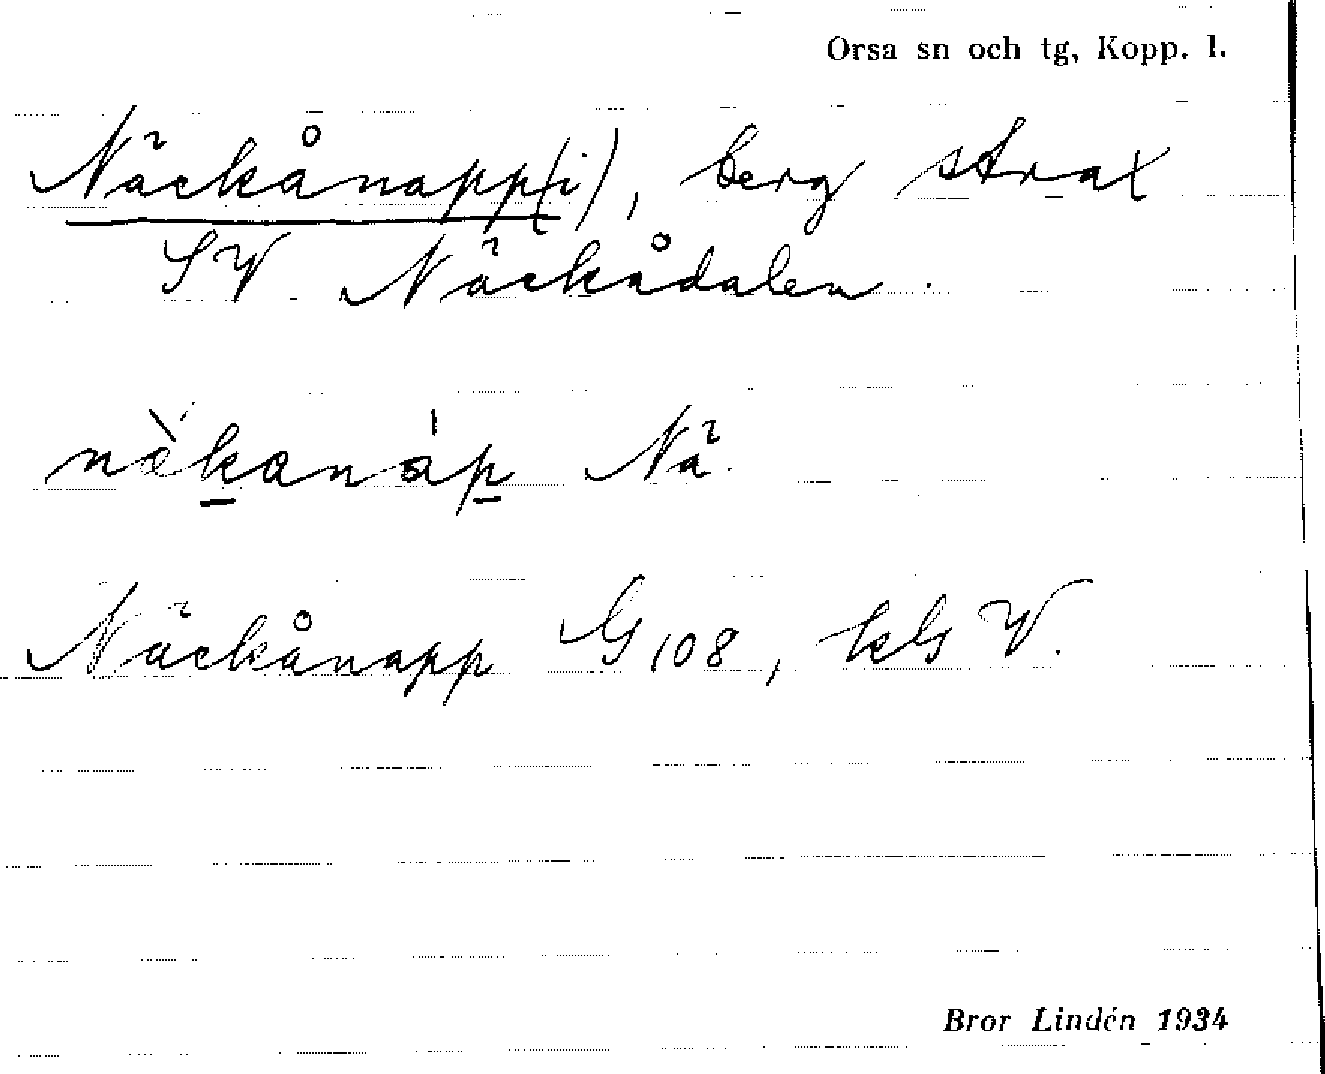 Orsa sn och tg, Kopp. l.
Näckånapp(i), berg strax
SV Näckådalen.
nækanáp Nä.
Näckånapp G 108, kG V.
Bror Lindén 1934